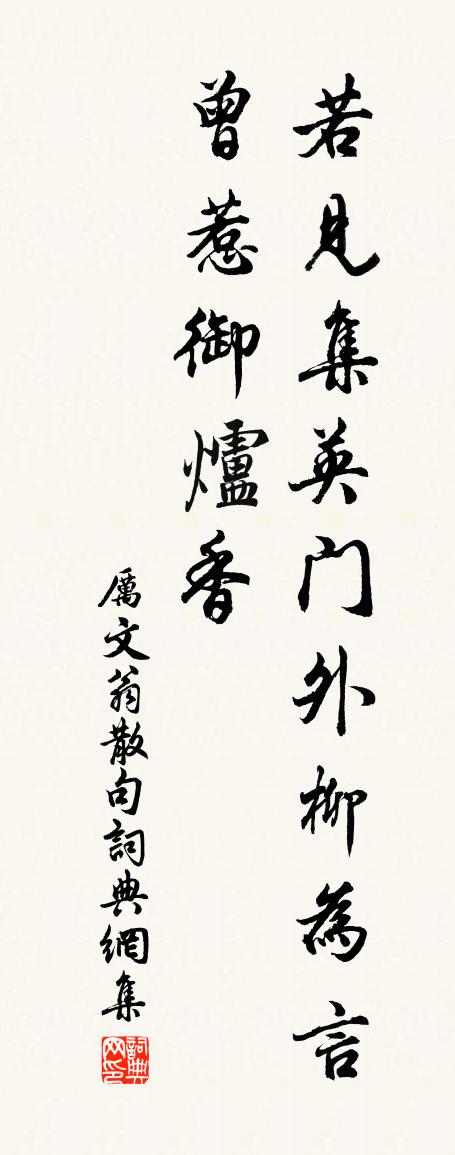 若見集英门外柳為言
曾惹御爐香
厲文翁散句詞典網集
詞典网印